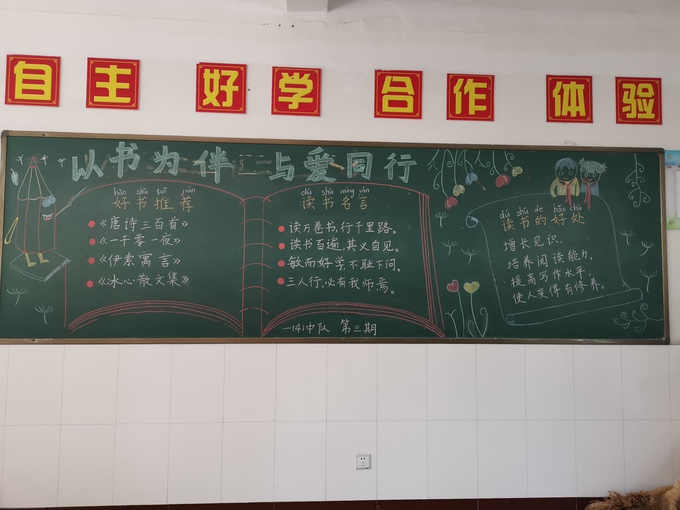 自主 好学 合作 体验
以书为伴 与爱同行
hǎo shū tuī jiàn
好书推荐
《唐诗三百首》
《一千零一夜》
《伊索寓言》
《冰心散文集》
dú shū míng yán
读书名言
读万卷书,行千里路。
读书百遍,其义自见。
敏而好学,不耻下问。
三人行,必有我师焉。
dú shū de hǎo chù
读书的好处
增长见识,
培养阅读能力,
提高写作水平,
使人变得有修养。
一(4)中队 第三期